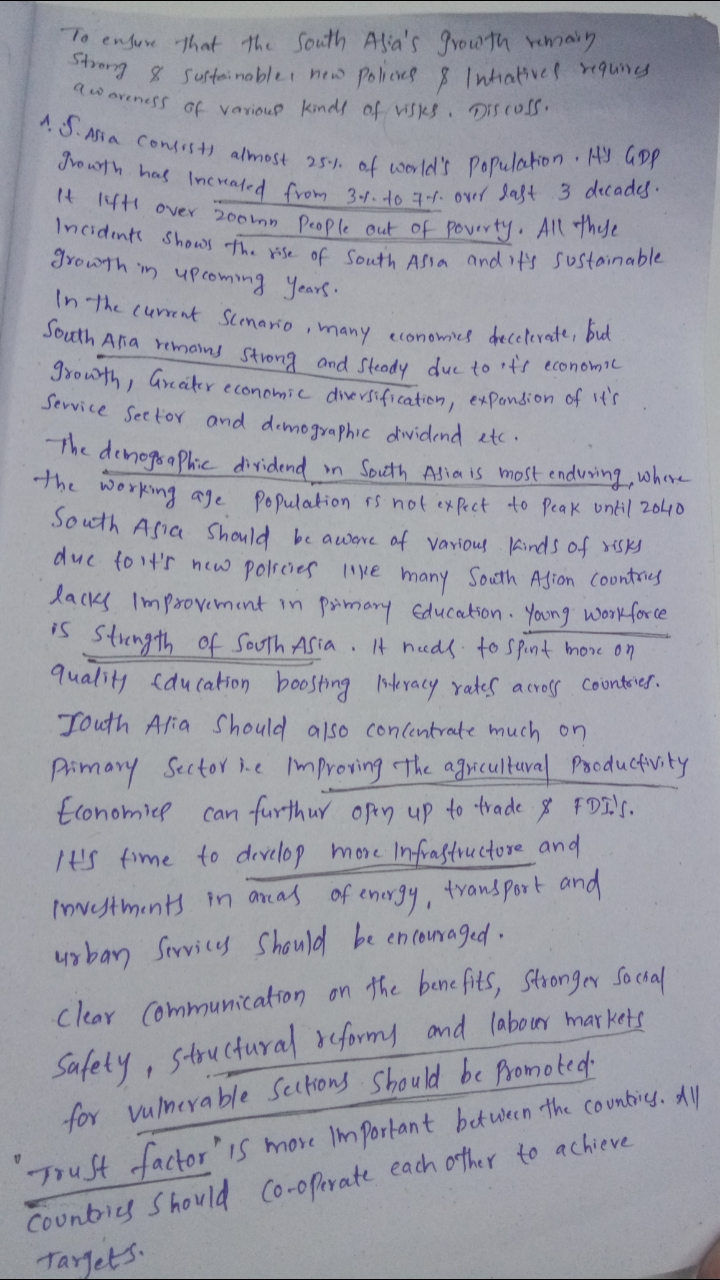 To ensure that the South Asia's growth remain
strong & sustainable, new policies & Intiatives requires
awareness of various kinds of risks. Discuss.
A. S. Asia consists almost 25% of world's population. It's GDP
growth has Increated from 3% to 7% over last 3 decades.
It lifts over 200mn People out of poverty. All these
Incidents shows the rise of South Asia and it's sustainable
growth in upcoming years.
In the current Scenario, many economies decelerate, but
South Asia remains strong and steady due to it's economic
growth, Greater economic diversification, expansion of it's
Service Sector and demographic dividend etc.
The demographic dividend in South Asia is most enduring, where
the working age population is not expect to peak until 2040
South Asia should be aware of various kinds of risks
due to it's new policies like many South Asian countries
lacks Improvement in primary Education. Young workforce
is Strength of South Asia. It needs to spent more on
quality Education boosting literacy rates across countries.
South Asia should also concentrate much on
Primary Sector i.e Improving the agricultural Productivity
Economies can furthur open up to trade & FDI's.
It's time to develop more Infrastructure and
investments in areas of energy, transport and
urban Services should be encouraged.
Clear Communication on the benefits, stronger Social
Safety, structural reforms and labour markets
for vulnerable sections should be Promoted.
"Trust factor" is more Important between the countries. All
countries should co-operate each other to achieve
Targets.